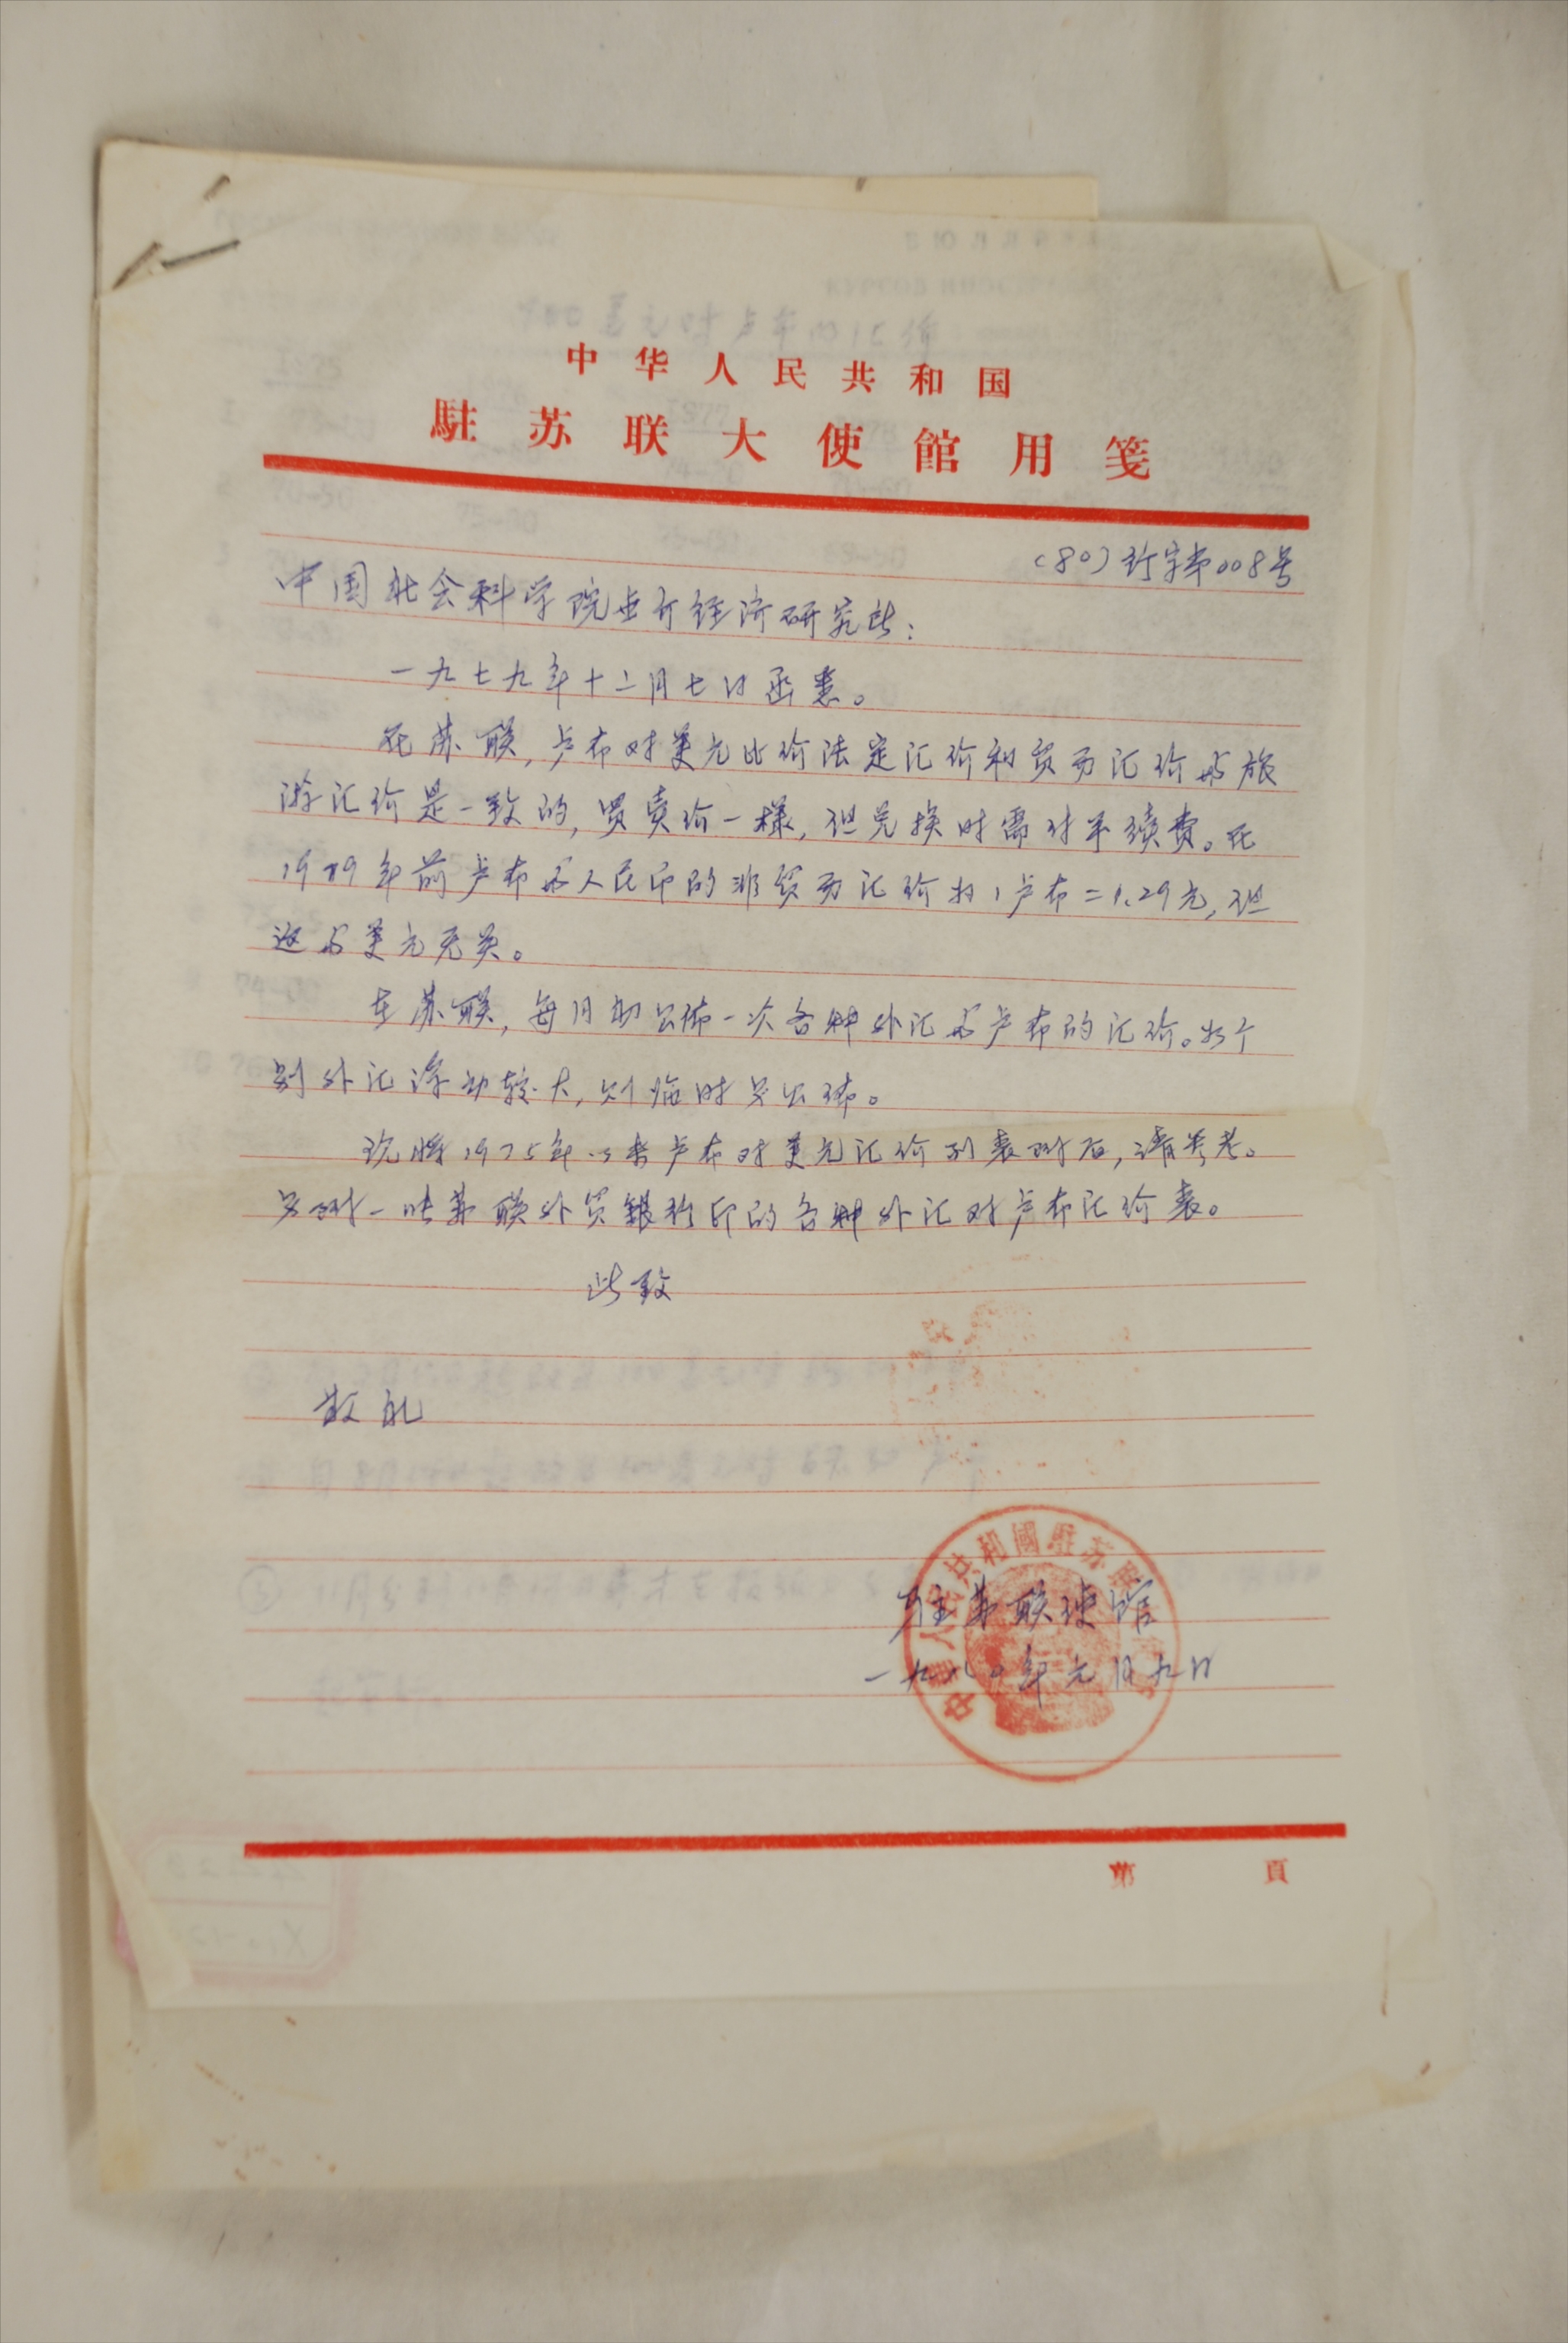 中华人民共和国
駐苏联大使館用笺
(80)行字第008号
中国社会科学院世界经济研究所:
一九七九年十二月七日函悉。
在苏联,卢布对美元比价法定汇价和贸易汇价与旅
游汇价是一致的,买卖价一樣,但兑换时需付手续费。在
1979年前卢布与人民币的非贸易汇价为1卢布=1.29元,但
这与美元无关。
在苏联,每月初公佈一次各种外汇与卢布的汇价。如个
别外汇浮动较大,则临时另公佈。
现将1975年以来卢布对美元汇价列表附后,请参考。
另附一张苏联外贸銀行印的各种外汇对卢布汇价表。
此致
敬礼
中華人民共和國駐苏联
驻苏联使馆
一九八〇年元月九日
第 頁